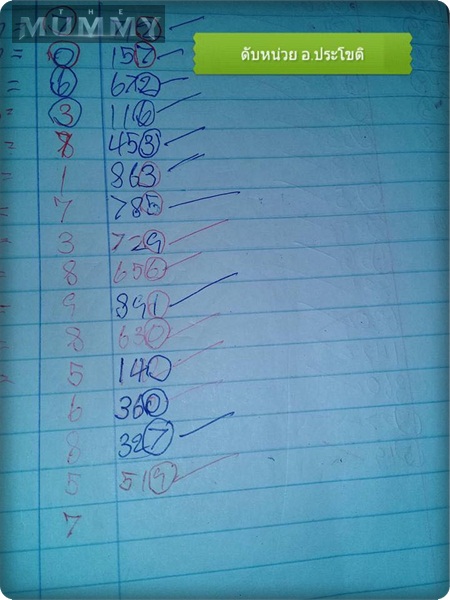 THE
MUMMY
ดับหน่วย อ.ประโชติ
= 0 157
= 6 672
3 116
8 453
1 863
7 785
3 729
8 656
9 891
8 630
5 140
6 360
8 327
5 519
7